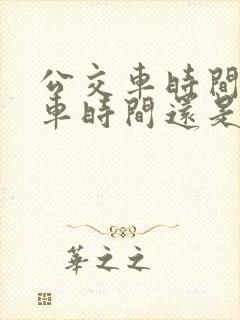 公交車時間
車時間還是
華之之